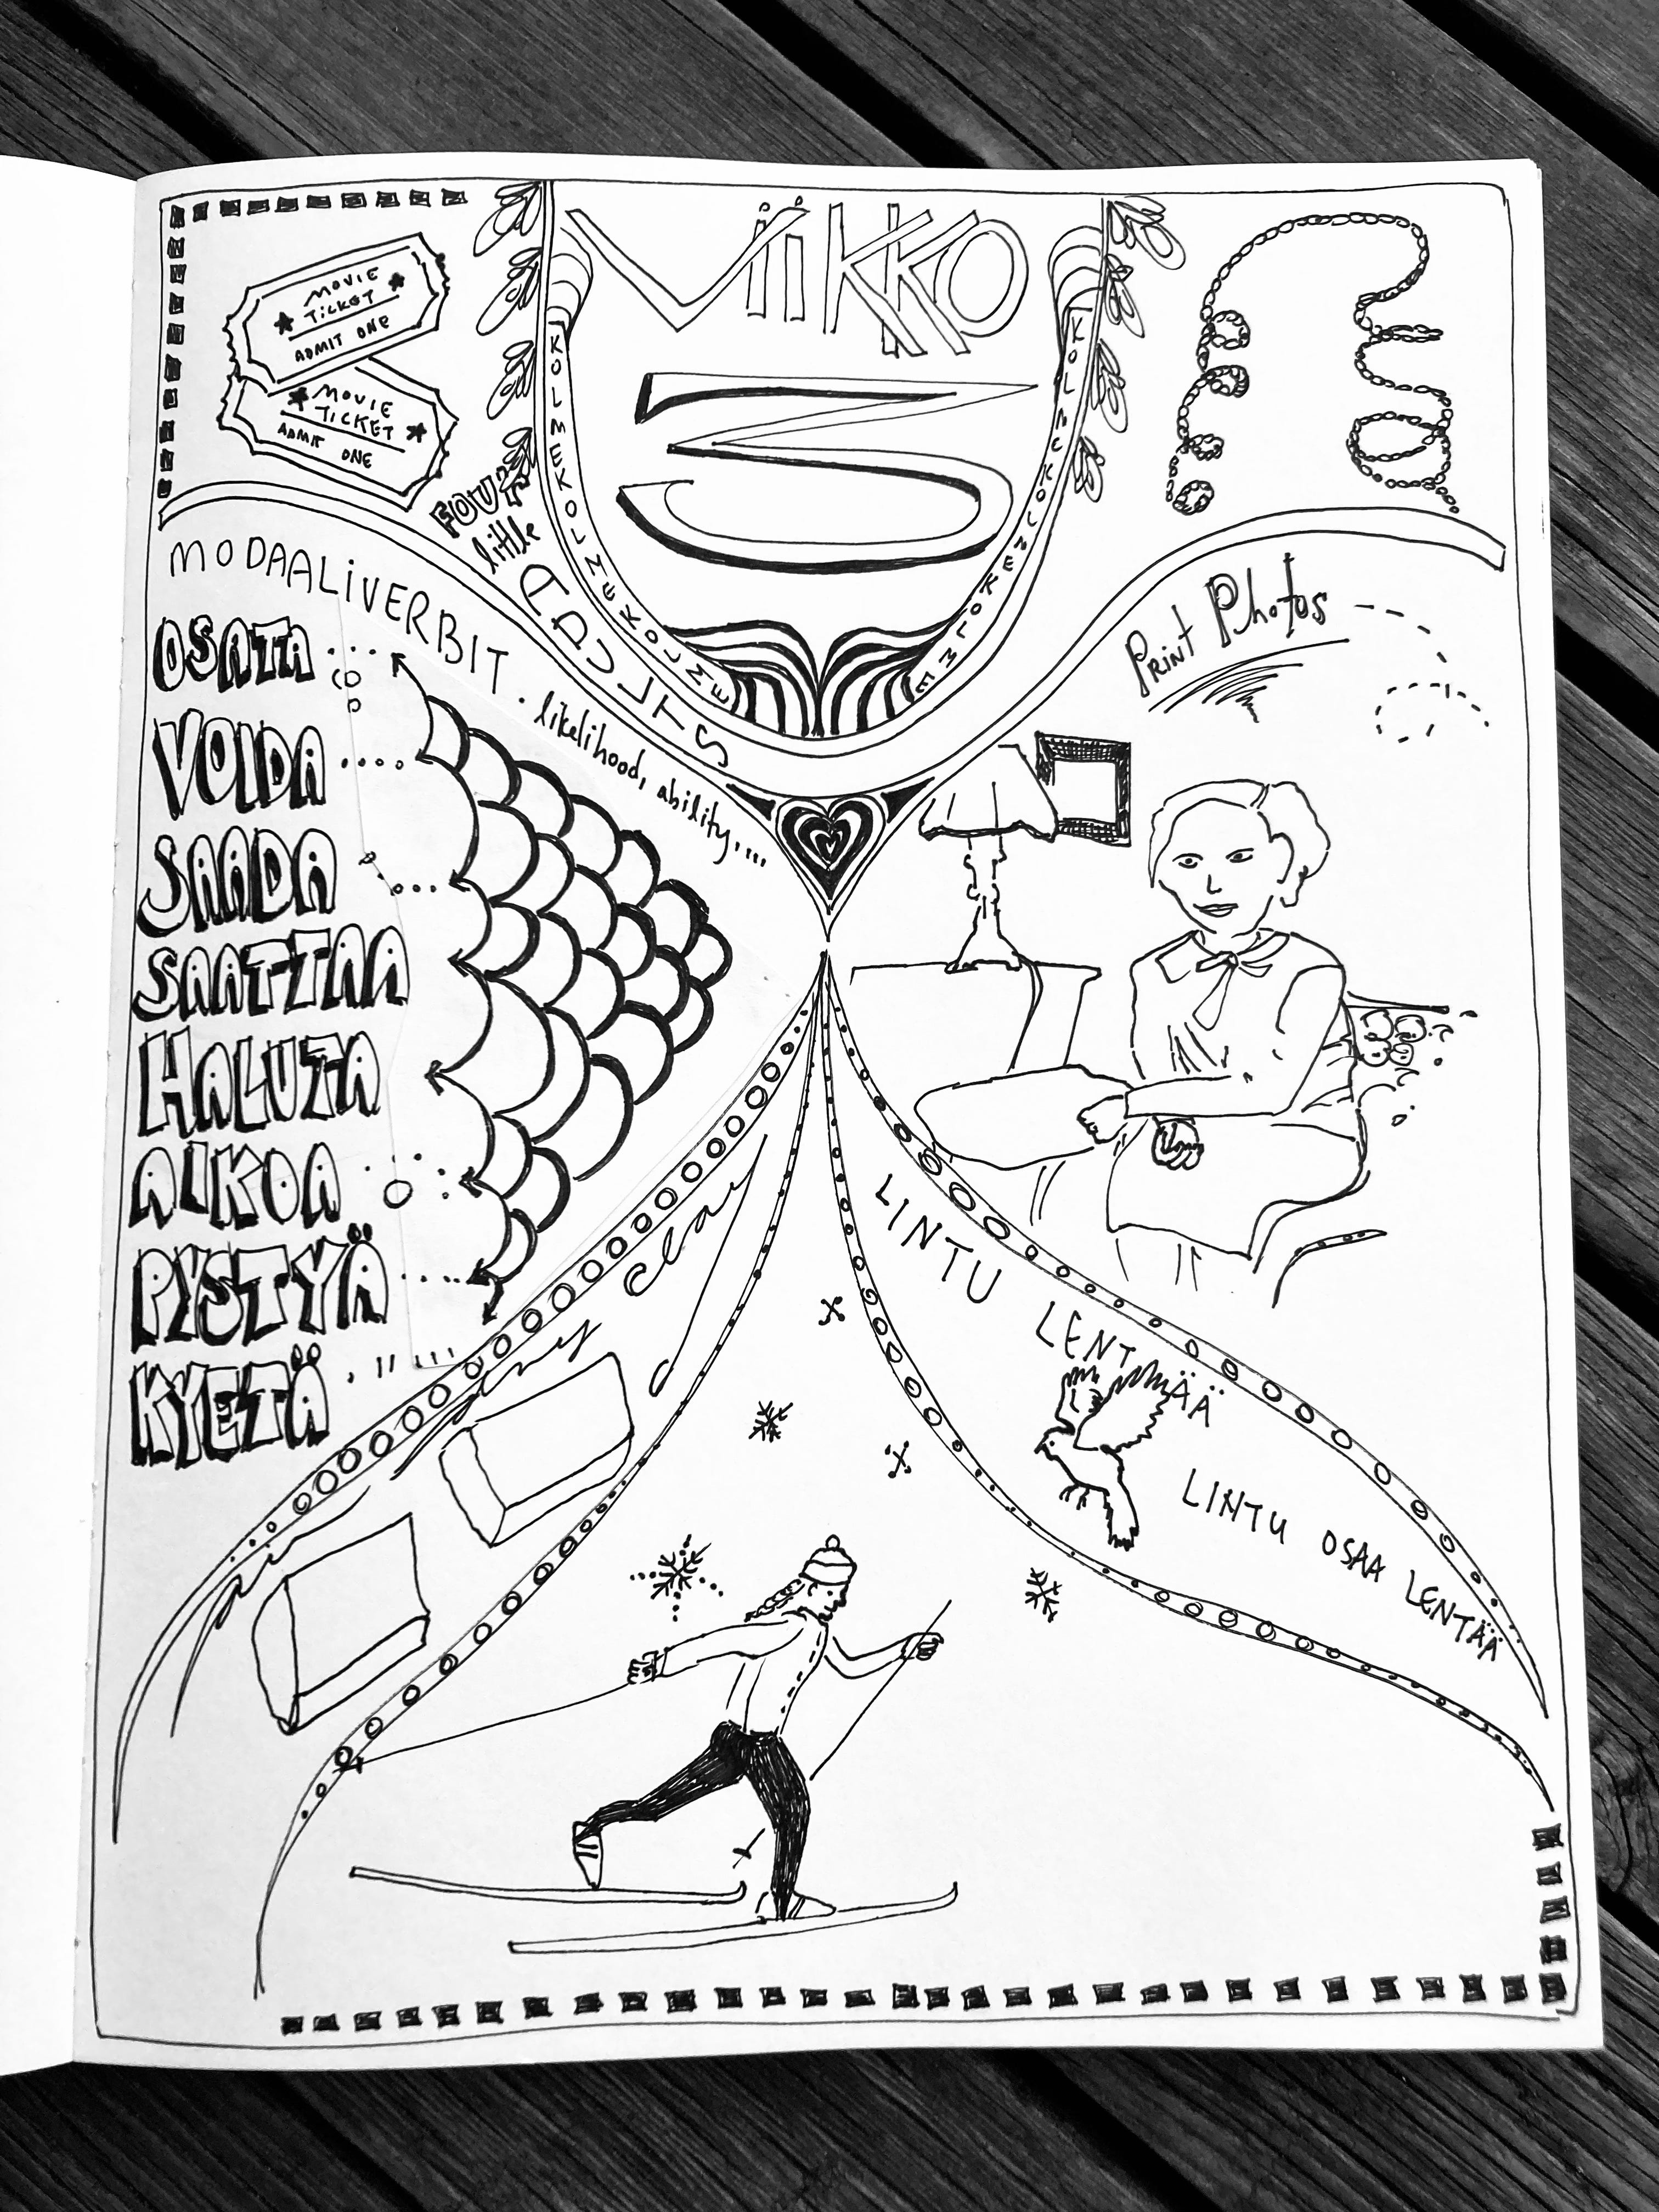 VIIKKO
3
KOLMEKOLMEKOLMEKOLME
KOLMEKOLMEKOLME
MOVIE
TICKET
ADMIT ONE
MOVIE
TICKET
ADMIT
ONE
FOUR
little
ADULTS
MODAALIVERBIT. likelihood, ability,...
OSATA
VOIDA
SAADA
SAATTAA
HALUTA
AIKOA
PYSTYÄ
KYETÄ
Print Photos
clay
LINTU LENTÄÄ
LINTU OSAA LENTÄÄ